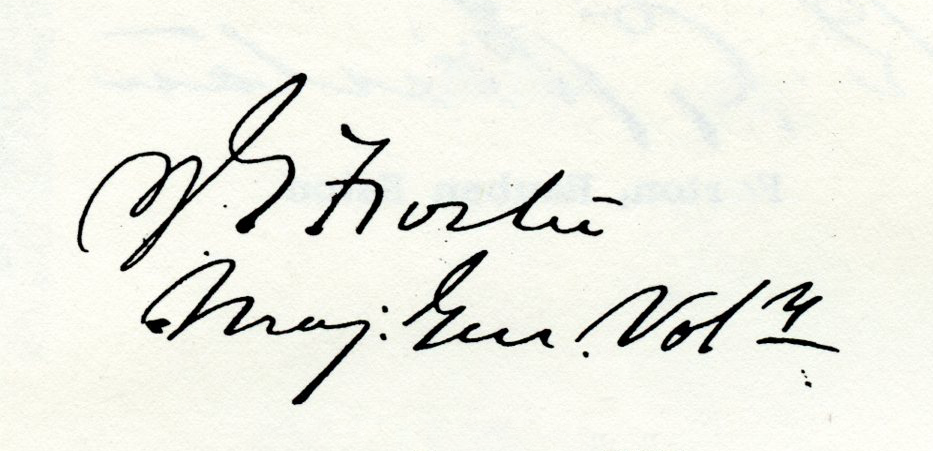 J G Foster
Maj. Gen. Vols